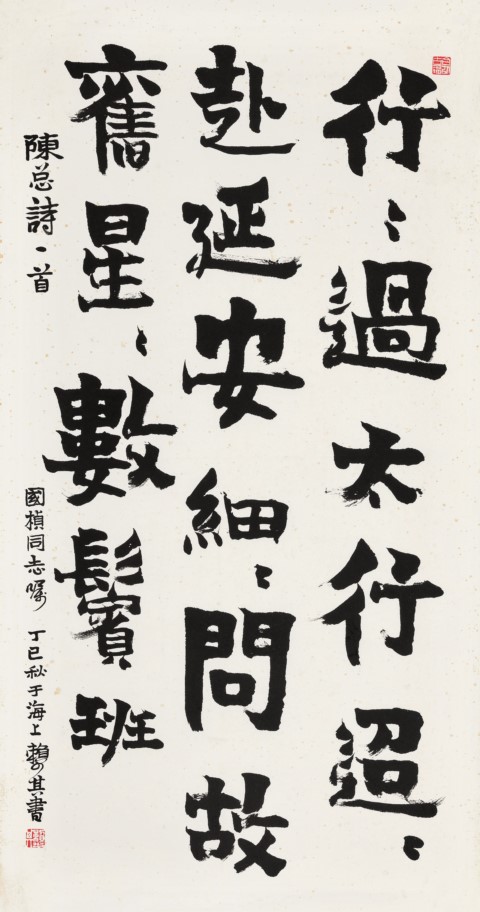 行〻過太行迢〻
赴延安細〻問故
舊星〻數鬢班
陳总詩一首
國楨同志嘱 丁巳秋于海上賴少其書